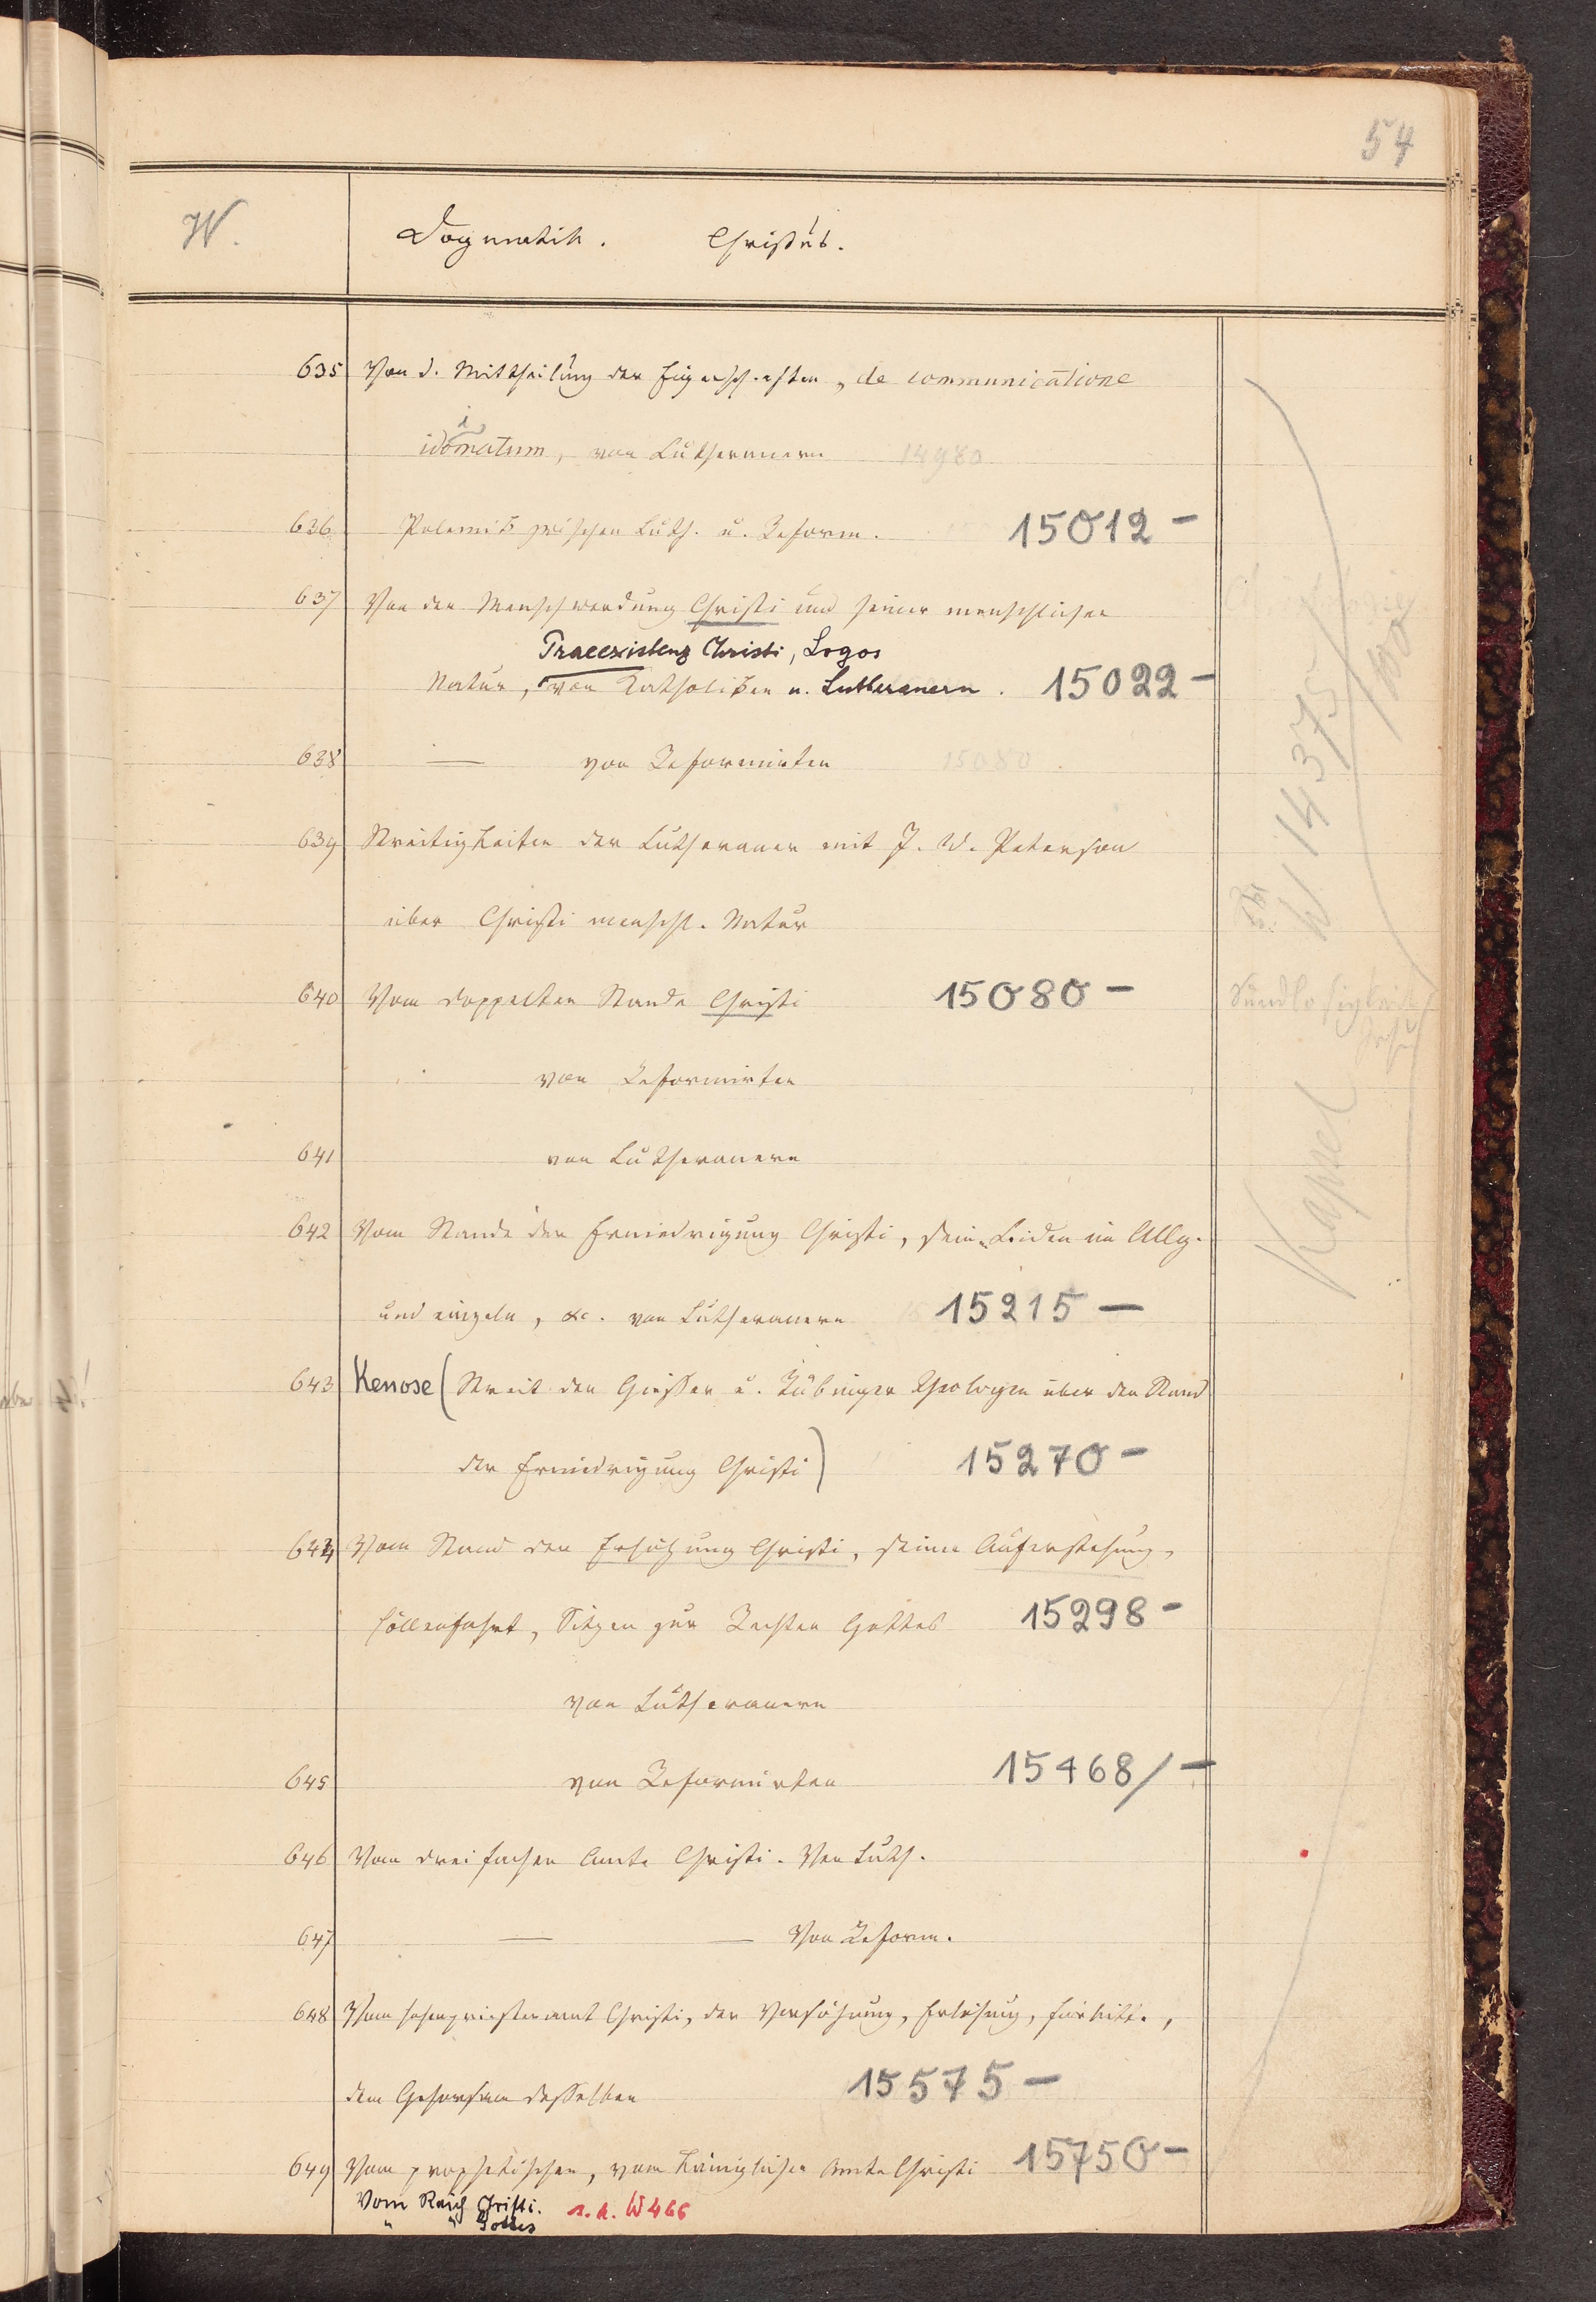 54
W.
Dogmatik. Christus.
635 Von d. Mittheilung der Eigenschaften, de communicatione
idiomatum, von Lutheranern 14980
636 Polemik zwischen Luth. u. Reform. 15012 –
637 Von der Menschwerdung Christi und seiner menschlichen
Praeexistenz Christi, Logos
Natur, von Katholiken u. Lutheranern. 15022 –
638 — von Reformirten 15080.
639 Streitigkeiten der Lutheraner mit J. W. Petersen
über Christi menschl. Natur
640 Vom doppelten Stande Christi 15080 –
von Reformirten
641 von Lutheranern
642 Vom Stande der Erniedrigung Christi, sein Leiden im Allg.
und einzeln, &c. von Lutheranern 15215 –
643 Kenose (Streit der Giesser u. Tübinger Theologen über den Stand
der Erniedrigung Christi) 15270 –
644 Vom Stand der Erhöhung Christi, seiner Auferstehung,
Höllenfahrt, Sitzen zur Rechten Gottes 15298 –
von Lutheranern
645 von Reformirten 15468/ –
646 Vom dreifachen Amte Christi. Von Luth.
647 — — Von Reform.
648 Vom hohenpriesteramt Christi, der Versöhnung, Erlösung, Fürbitte,
dem Gehorsam desselben 15575 –
649 Vom prophetischen, vom königlichen Amte Christi 15750 –
Vom Reich Christi. s. a. W 466
" " Gottes
W 14375/
100
Sündlosigkeit
Jesu
Kapsel